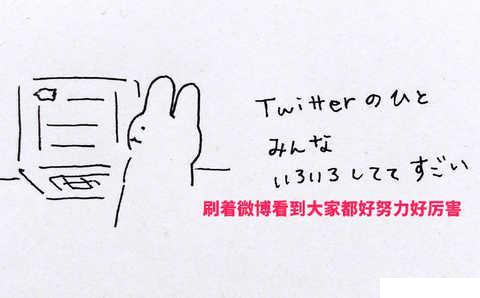 Twitterのひと
みんな
いろいろしてて すごい
刷着微博看到大家都好努力好厉害